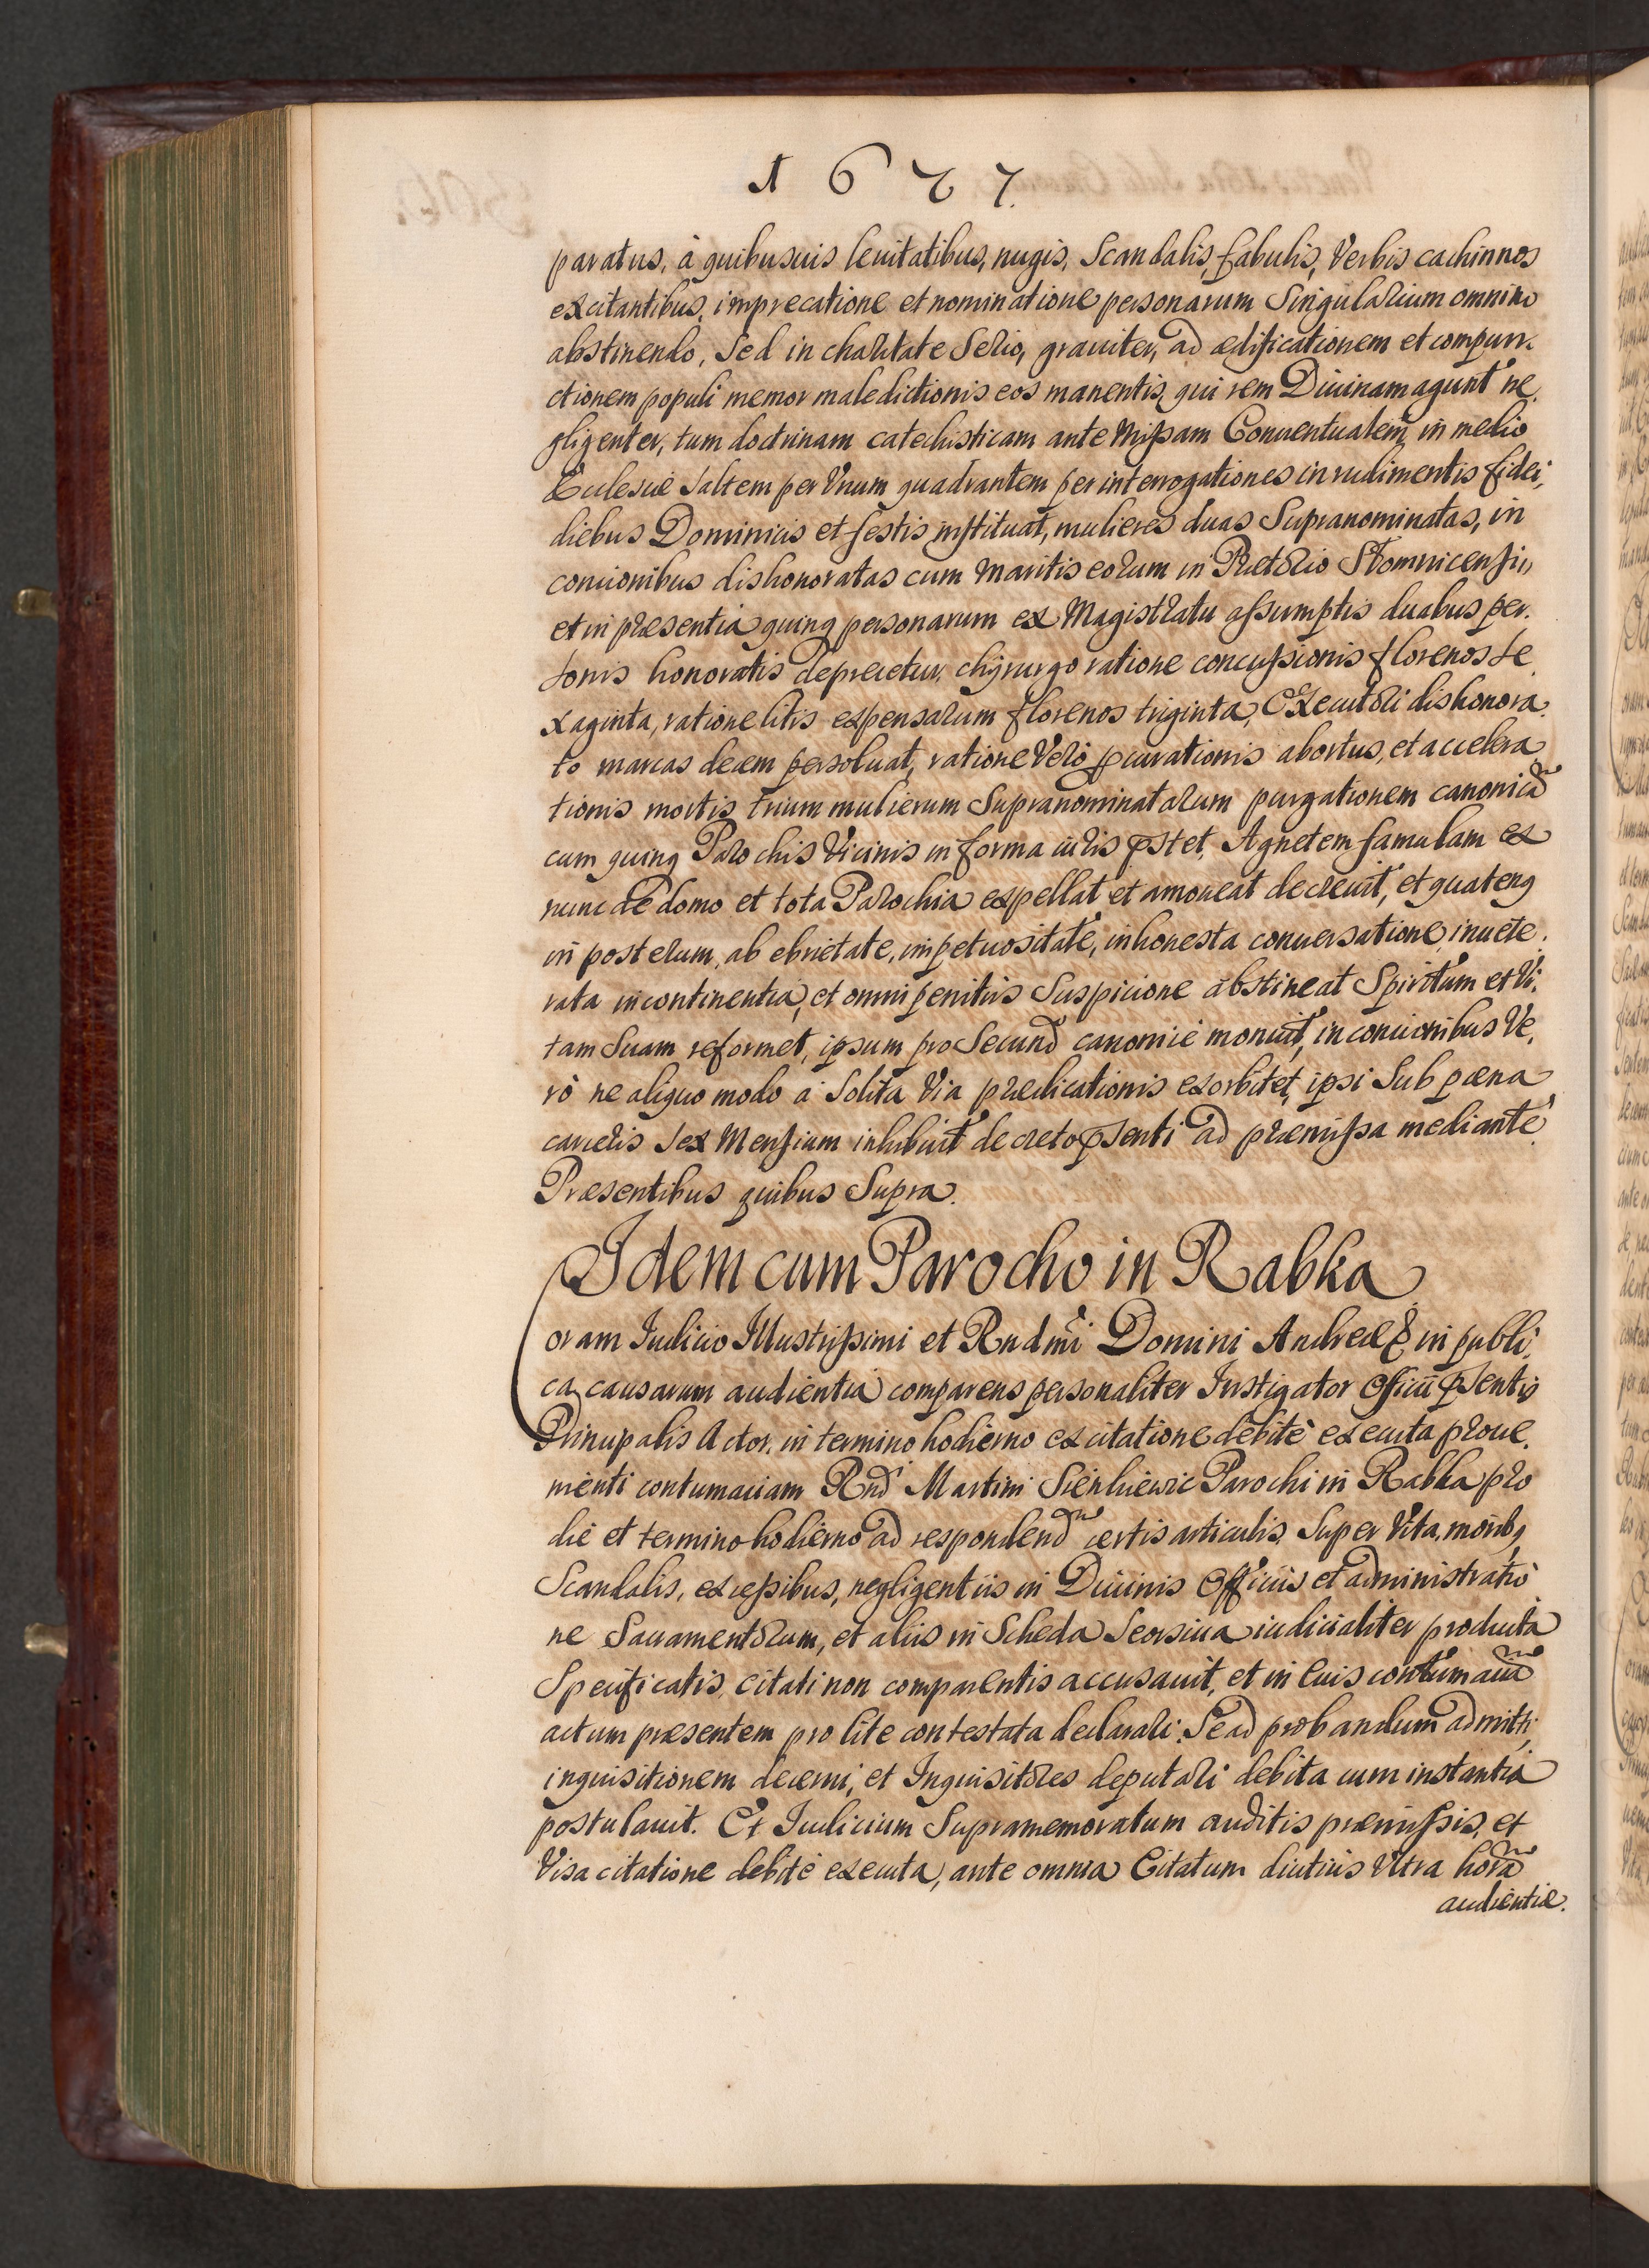 1677.
paratus, à quibusuis leuitatibus, nugis, Scandalis, fabulis, Verbis cachinnos
excitantibus, imprecatione et nominatione personarum Singularium omnino
abstinendo, Sed in charitate Serio, grauiter, ad ædificationem et compun-
ctionem populi memor maledictionis eos manentis, qui rem Diuinam agunt ne,
gligenter, tum doctrinam catechisticam ante Missam Conuentualem, in medio
Ecclesiæ Saltem per Vnum quadrantem per interrogationes in rudimentis fidei,
diebus Dominicis et festis instituat, mulieres duas Supranominatas, in
concionibus dishonoratas cum Maritis eorum in Prætorio Stomnicensi,,
et in præsentia quinq personarum ex Magistratu assumptis duabus per.
sonis honoratis deprecetur, chyrurgo ratione concussionis florenos se
xaginta, ratione litis expensarum florenos triginta, Executori dishonora.
to marcas decem persoluat, ratione Vero pcurationis abortus, et accelera
tionis mortis trium mulierum Supranominatarum purgationem canonicã
cum quinq Parochis Vicinis in forma iuris pstet, Agnetem famulam ex
nunc de domo et tota Parochia expellat et amoueat decreuit, et quatenq
in posterum, ab ebrietate, impetuositate, inhonesta conuersatione, inuete.
rata incontinentia, et omni penitus Suspicione abstineat Spiritum et Vi.
tam Suam reformet, ipsum pro Secund canonicè monuit, in concionibus Ve,
rò ne aliquo modo a Solita Via prædicationis exorbitet, ipsi Sub pœna
carceris Sex Mensium inhibuit decreto psenti ad præmissa mediante
Præsentibus quibus Supra.
Idem cum Parocho in Rabka
Coram Iudicio Illustrissimi et Rndmi Domini Andreæ & in publi,
ca causarum audientia comparens personaliter Instigator Officii psentis
Principalis Actor, in termino hodierno ex citatione debitè executa proue.
nienti contumaciam Rnd Martini Sienkiewic Parochi in Rabka pro
die et termino hodierno ad respondend certis articulis, Super Vita, moribq
Scandalis, excessibus, negligentiis in Diuinis Officiis et administratio
ne Sacramentorum, et aliis in Scheda Seorsiua iudicialiter producta
Specificatis, citati non comparentis accusauit, et in euis contumaciã
actum præsentem pro lite contestata declarari: Se ad probandum admitti,
inquisitionem decerni, et Inquisitores deputari debita cum instantia
postulauit. Et Iudicium Supramemoratum auditis præmissis, et
Visa citatione debitè executa, ante omnia Citatum diutius Vltra horã
audientiæ.